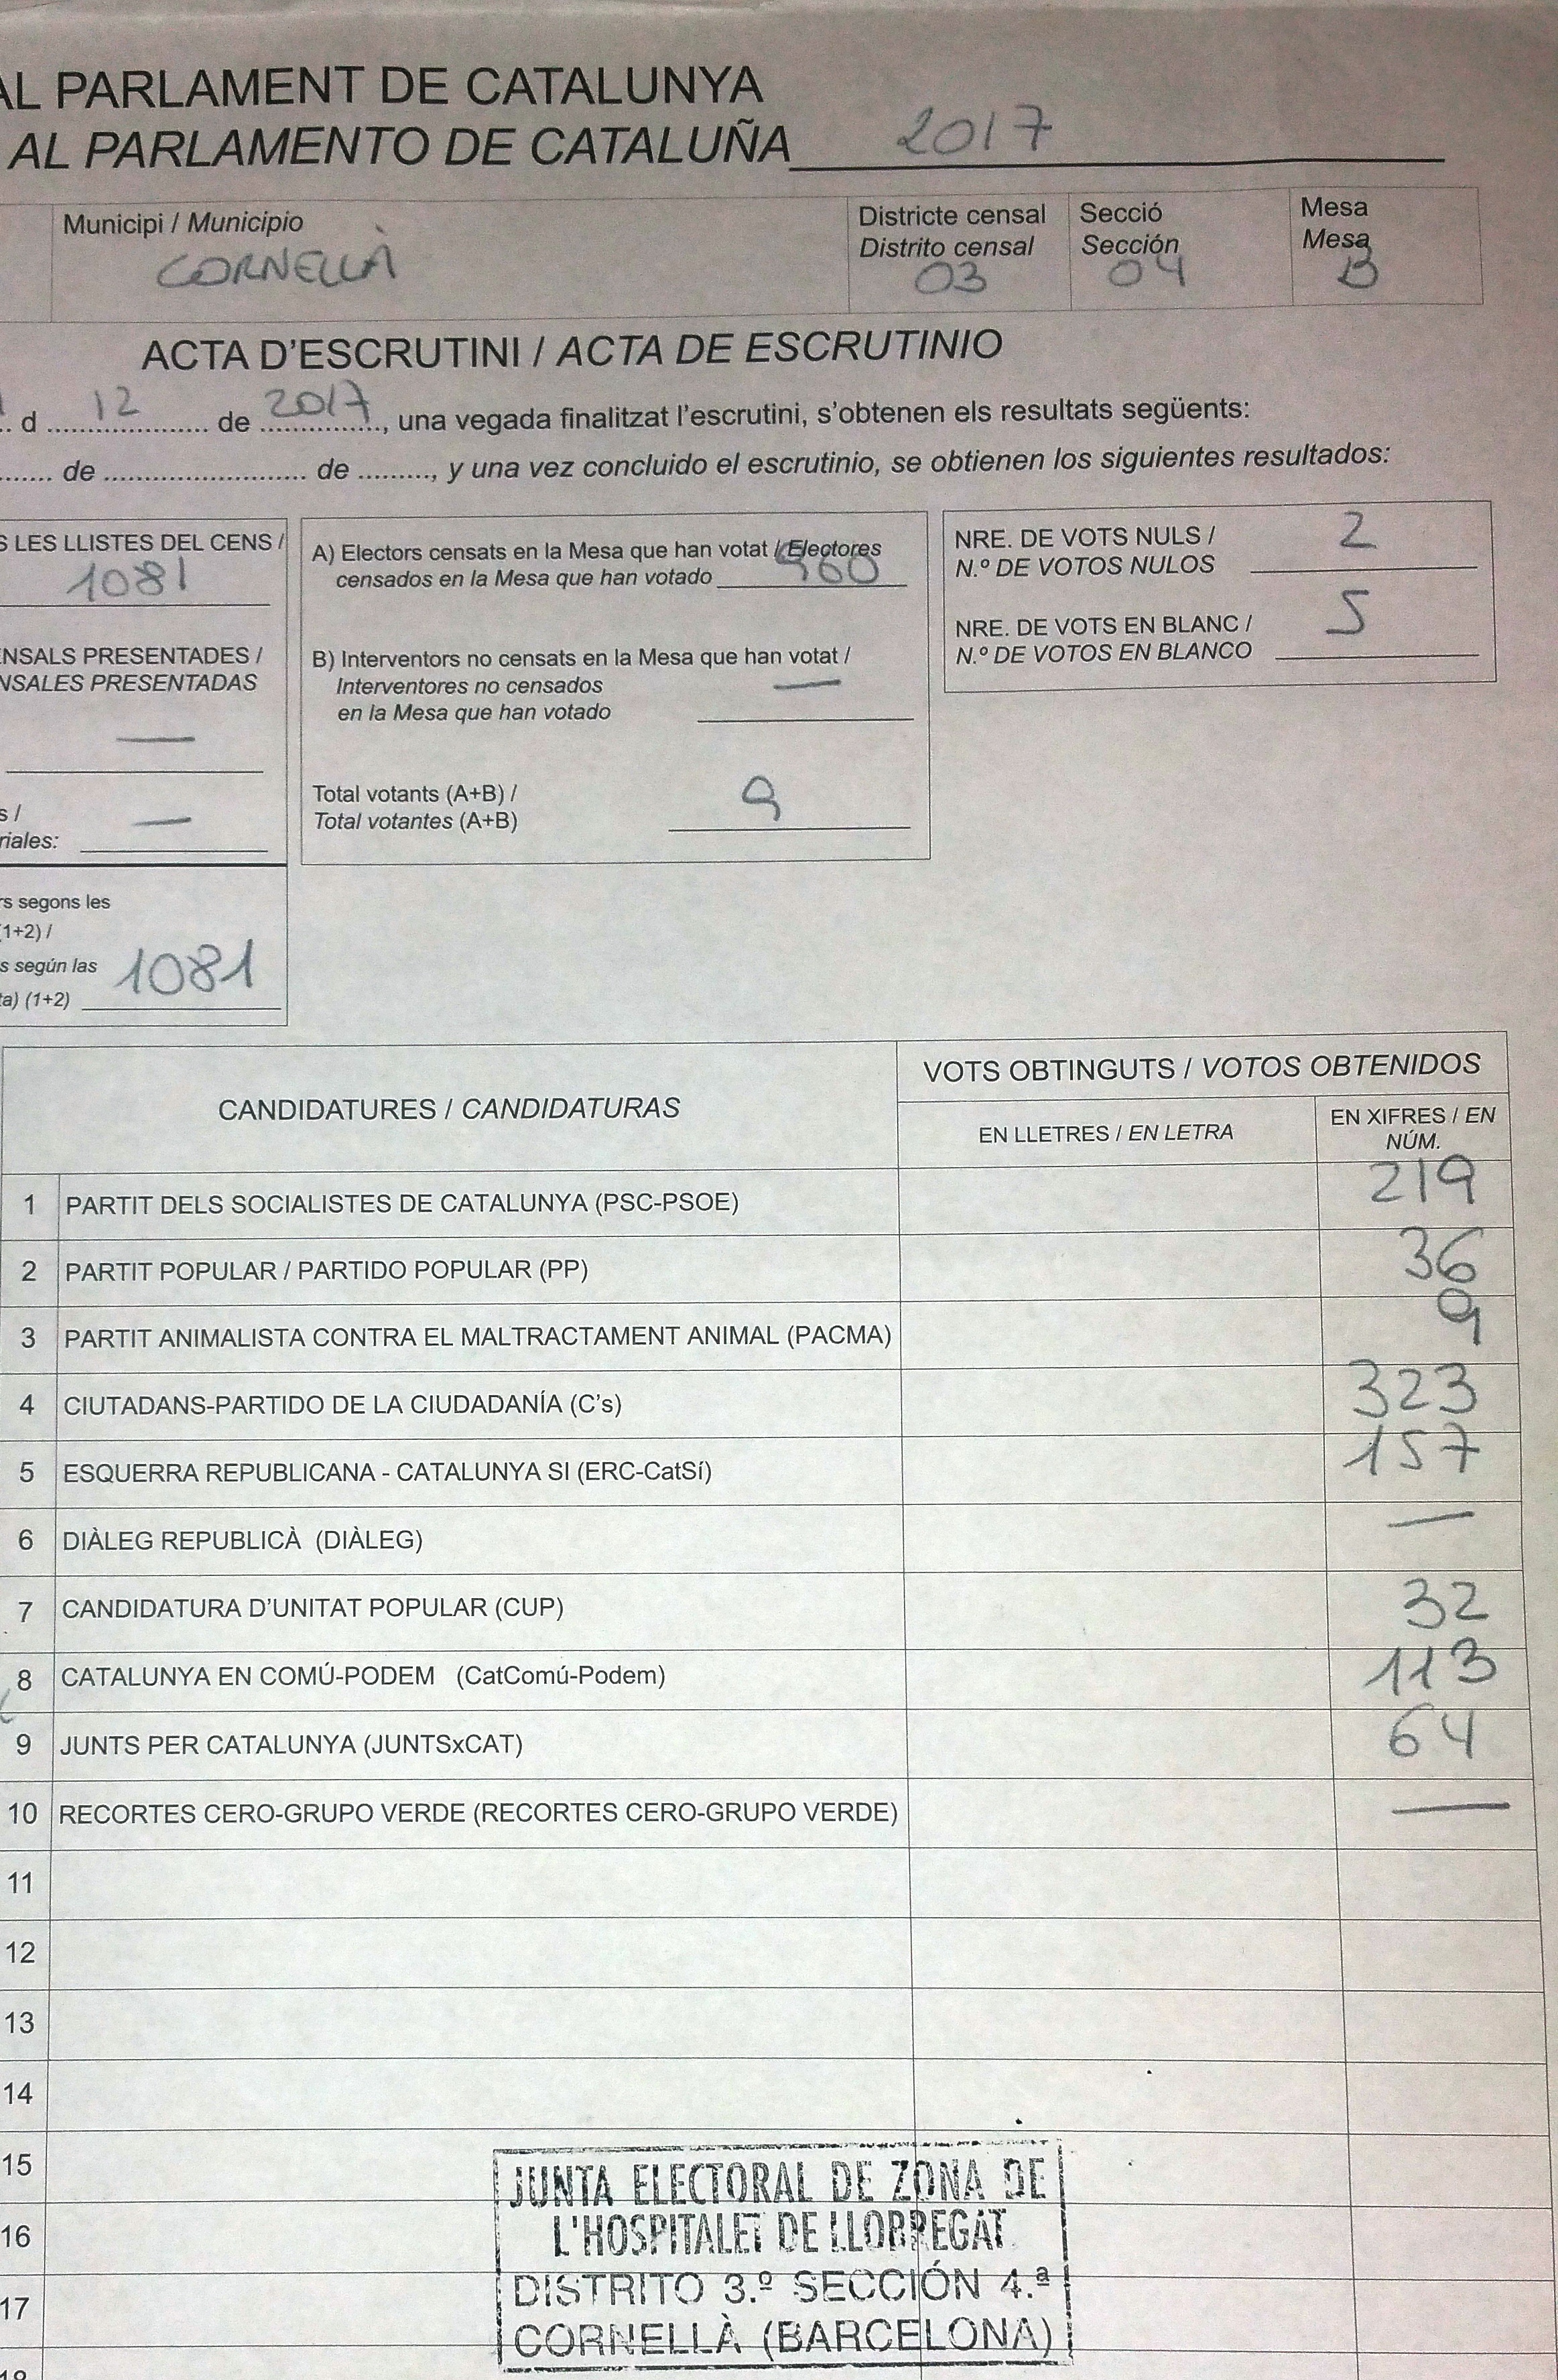 AL PARLAMENT DE CATALUNYA
AL PARLAMENTO DE CATALUÑA 2017
Municipi / Municipio
CORNELLÀ
Districte censal
Distrito censal
03
Secció
Sección
04
Mesa
Mesa
B
ACTA D'ESCRUTINI / ACTA DE ESCRUTINIO
d 12 de 2017, una vegada finalitzat l'escrutini, s'obtenen els resultats següents:
de de, y una vez concluido el escrutinio, se obtienen los siguientes resultados:
S LES LLISTES DEL CENS /
1081
ENSALS PRESENTADES /
NSALES PRESENTADAS
—
s /
riales: —
rs segons les
(1+2) /
s según las
ta) (1+2) 1081
A) Electors censats en la Mesa que han votat / Electores
censados en la Mesa que han votado 960
B) Interventors no censats en la Mesa que han votat /
Interventores no censados
en la Mesa que han votado —
Total votants (A+B) /
Total votantes (A+B) 9
NRE. DE VOTS NULS /
N.º DE VOTOS NULOS 2
NRE. DE VOTS EN BLANC /
N.º DE VOTOS EN BLANCO 5
CANDIDATURES / CANDIDATURAS
VOTS OBTINGUTS / VOTOS OBTENIDOS
EN LLETRES / EN LETRA
EN XIFRES / EN
NÚM.
1 PARTIT DELS SOCIALISTES DE CATALUNYA (PSC-PSOE) 219
2 PARTIT POPULAR / PARTIDO POPULAR (PP) 36
3 PARTIT ANIMALISTA CONTRA EL MALTRACTAMENT ANIMAL (PACMA) 9
4 CIUTADANS-PARTIDO DE LA CIUDADANÍA (C's) 323
5 ESQUERRA REPUBLICANA - CATALUNYA SI (ERC-CatSí) 157
6 DIÀLEG REPUBLICÀ (DIÀLEG) —
7 CANDIDATURA D'UNITAT POPULAR (CUP) 32
8 CATALUNYA EN COMÚ-PODEM (CatComú-Podem) 113
9 JUNTS PER CATALUNYA (JUNTSxCAT) 64
10 RECORTES CERO-GRUPO VERDE (RECORTES CERO-GRUPO VERDE) —
11
12
13
14
15
16
17
18
JUNTA ELECTORAL DE ZONA DE
L'HOSPITALET DE LLOBREGAT
DISTRITO 3.º SECCIÓN 4.ª
CORNELLÀ (BARCELONA)